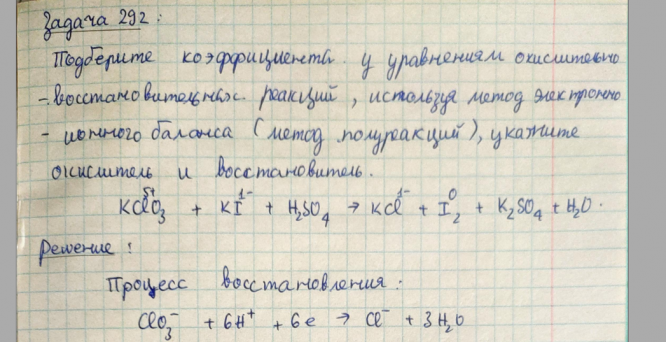 Задача 292:
Подберите коэффициенты у уравнениям окислительно
-восстановительных реакций, используя метод электронно
-ионного баланса (метод полуреакций), укажите
окислитель и восстановитель.
KCl⁵⁺O₃ + KI¹⁻ + H₂SO₄ → KCl¹⁻ + I₂⁰ + K₂SO₄ + H₂O.
Решение:
Процесс восстановления:
ClO₃⁻ + 6H⁺ + 6e → Cl⁻ + 3H₂O